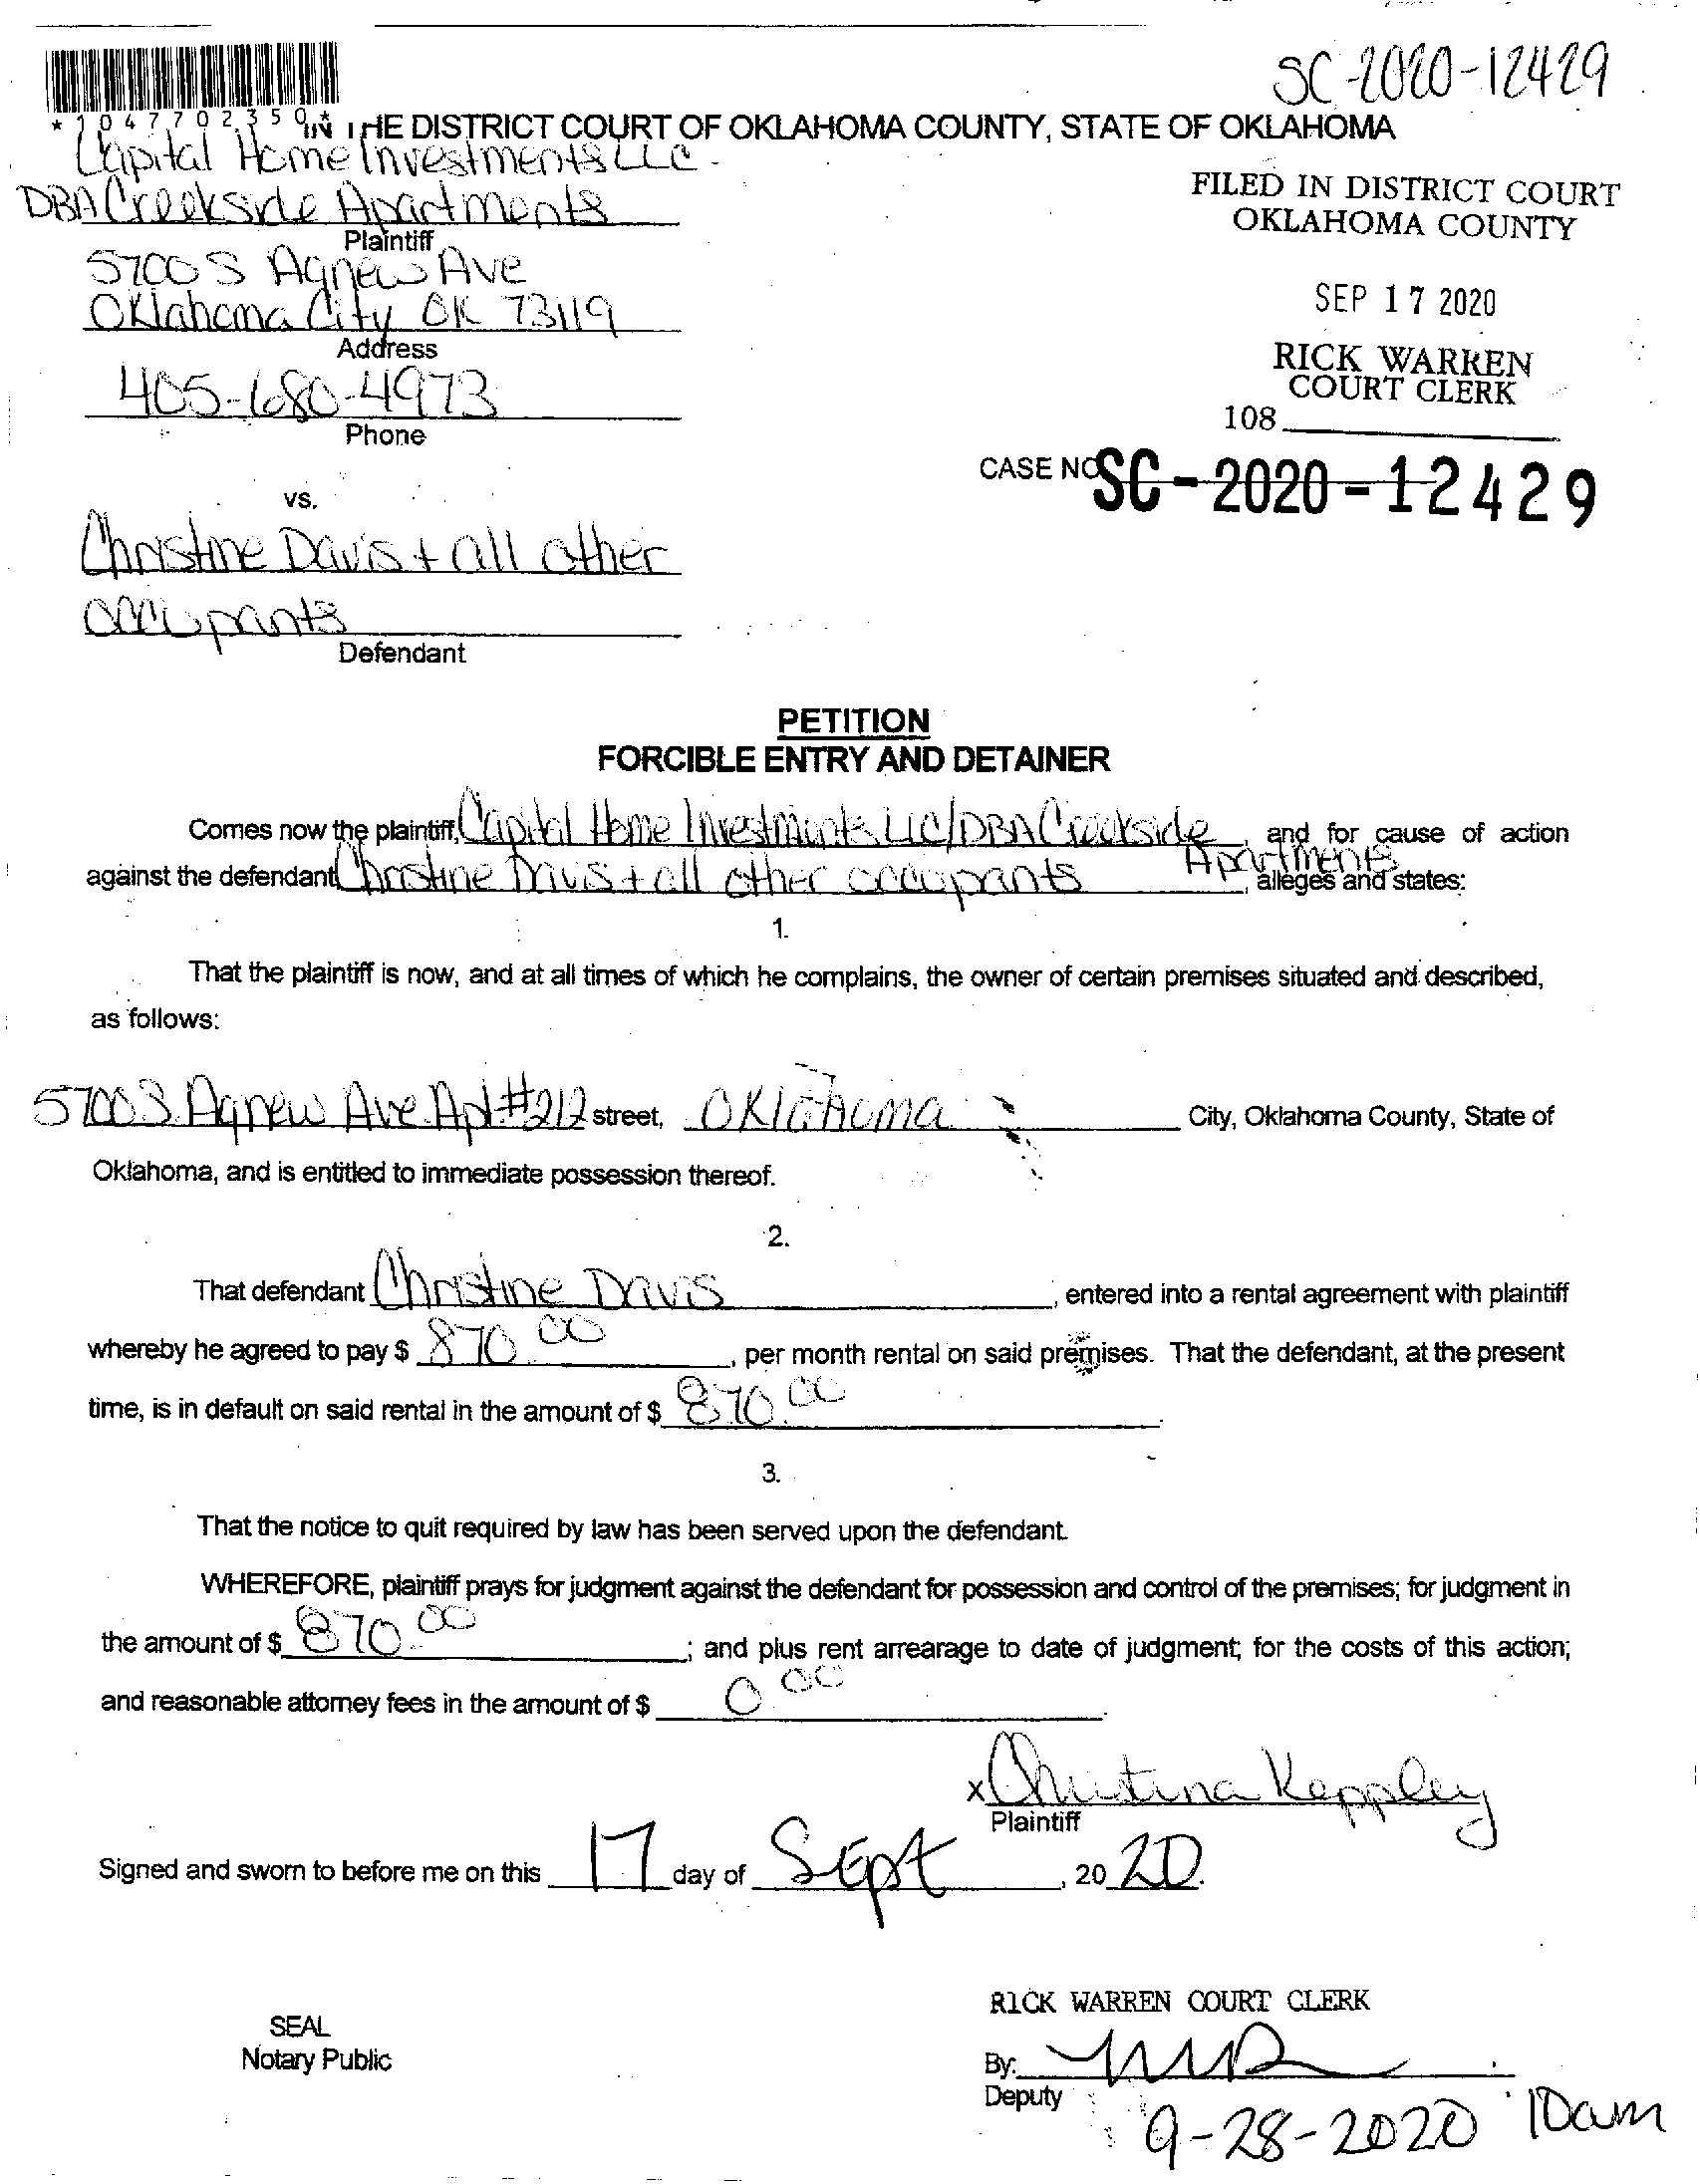 SC-2020-12429
*1047702350*
IN THE DISTRICT COURT OF OKLAHOMA COUNTY, STATE OF OKLAHOMA
Capital Home Investments LLC
DBA Creekside Apartments
Plaintiff
5700 S Agnew Ave
Oklahoma City OK 73119
Address
405-680-4973
Phone
FILED IN DISTRICT COURT
OKLAHOMA COUNTY
SEP 17 2020
RICK WARREN
COURT CLERK
108
CASE NO SC-2020-12429
vs.
Christine Davis + all other
occupants
Defendant
PETITION
FORCIBLE ENTRY AND DETAINER
Comes now the plaintiff, Capital Home Investments LLC/DBA Creekside Apartments, and for cause of action
against the defendant Christine Davis + all other occupants, alleges and states:
1.
That the plaintiff is now, and at all times of which he complains, the owner of certain premises situated and described,
as follows:
5700 S. Agnew Ave. Apt #212 street, Oklahoma City, Oklahoma County, State of
Oklahoma, and is entitled to immediate possession thereof.
2.
That defendant Christine Davis, entered into a rental agreement with plaintiff
whereby he agreed to pay $ 870.00, per month rental on said premises. That the defendant, at the present
time, is in default on said rental in the amount of $ 870.00.
3.
That the notice to quit required by law has been served upon the defendant.
WHEREFORE, plaintiff prays for judgment against the defendant for possession and control of the premises; for judgment in
the amount of $ 870.00; and plus rent arrearage to date of judgment; for the costs of this action;
and reasonable attorney fees in the amount of $ 0.00.
x Christina Keppley
Plaintiff
Signed and sworn to before me on this 17 day of Sept, 2020.
RICK WARREN COURT CLERK
SEAL
Notary Public
By:
Deputy
9-28-2020 10am